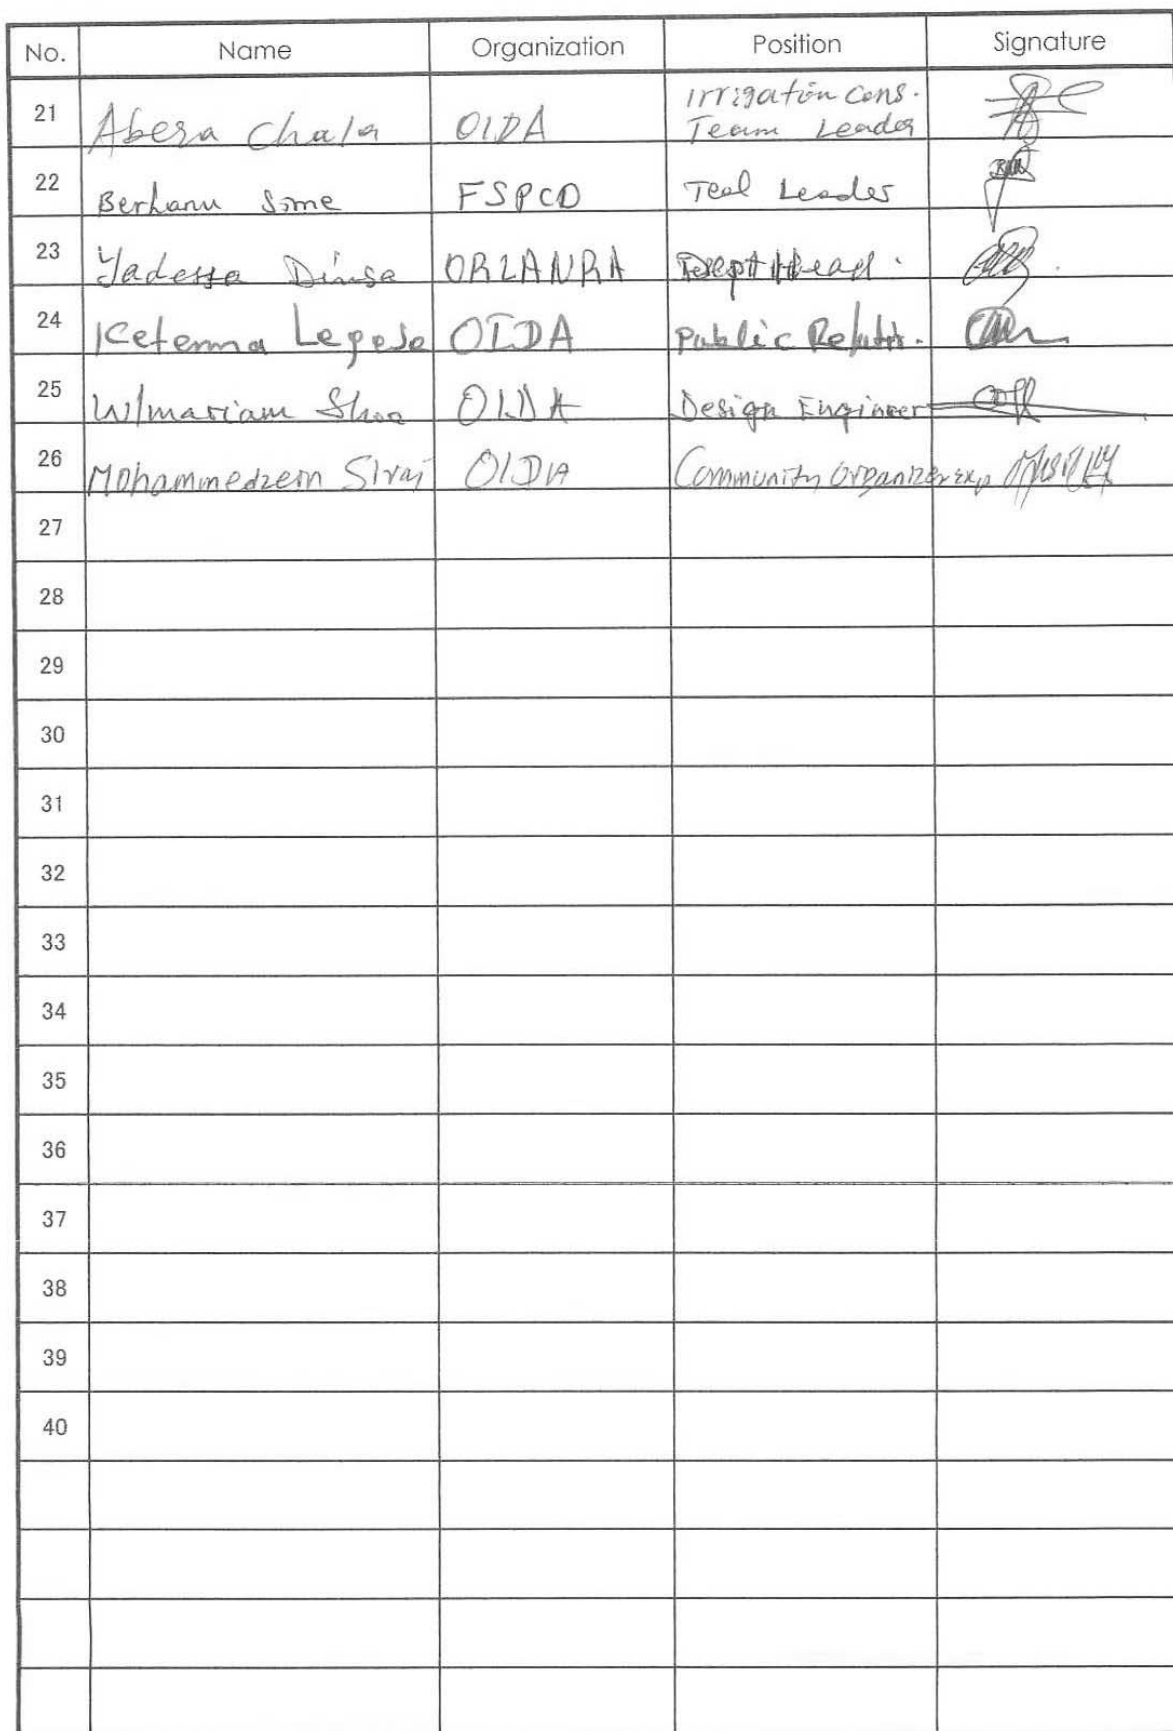 No. Name Organization Position Signature
21 Abera Chala OIDA Irrigation Cons. Team Leader
22 Berhanu Sime FSPCD Teal Leader
23 Yadessa Dinsa ORLANRA Dept Head.
24 Ketemma Legese OIDA Public Relatn.
25 W/mariam Shoa OIDA Design Engineer
26 Mohammedzein Siraj OIDA Community Organizer exp
27
28
29
30
31
32
33
34
35
36
37
38
39
40